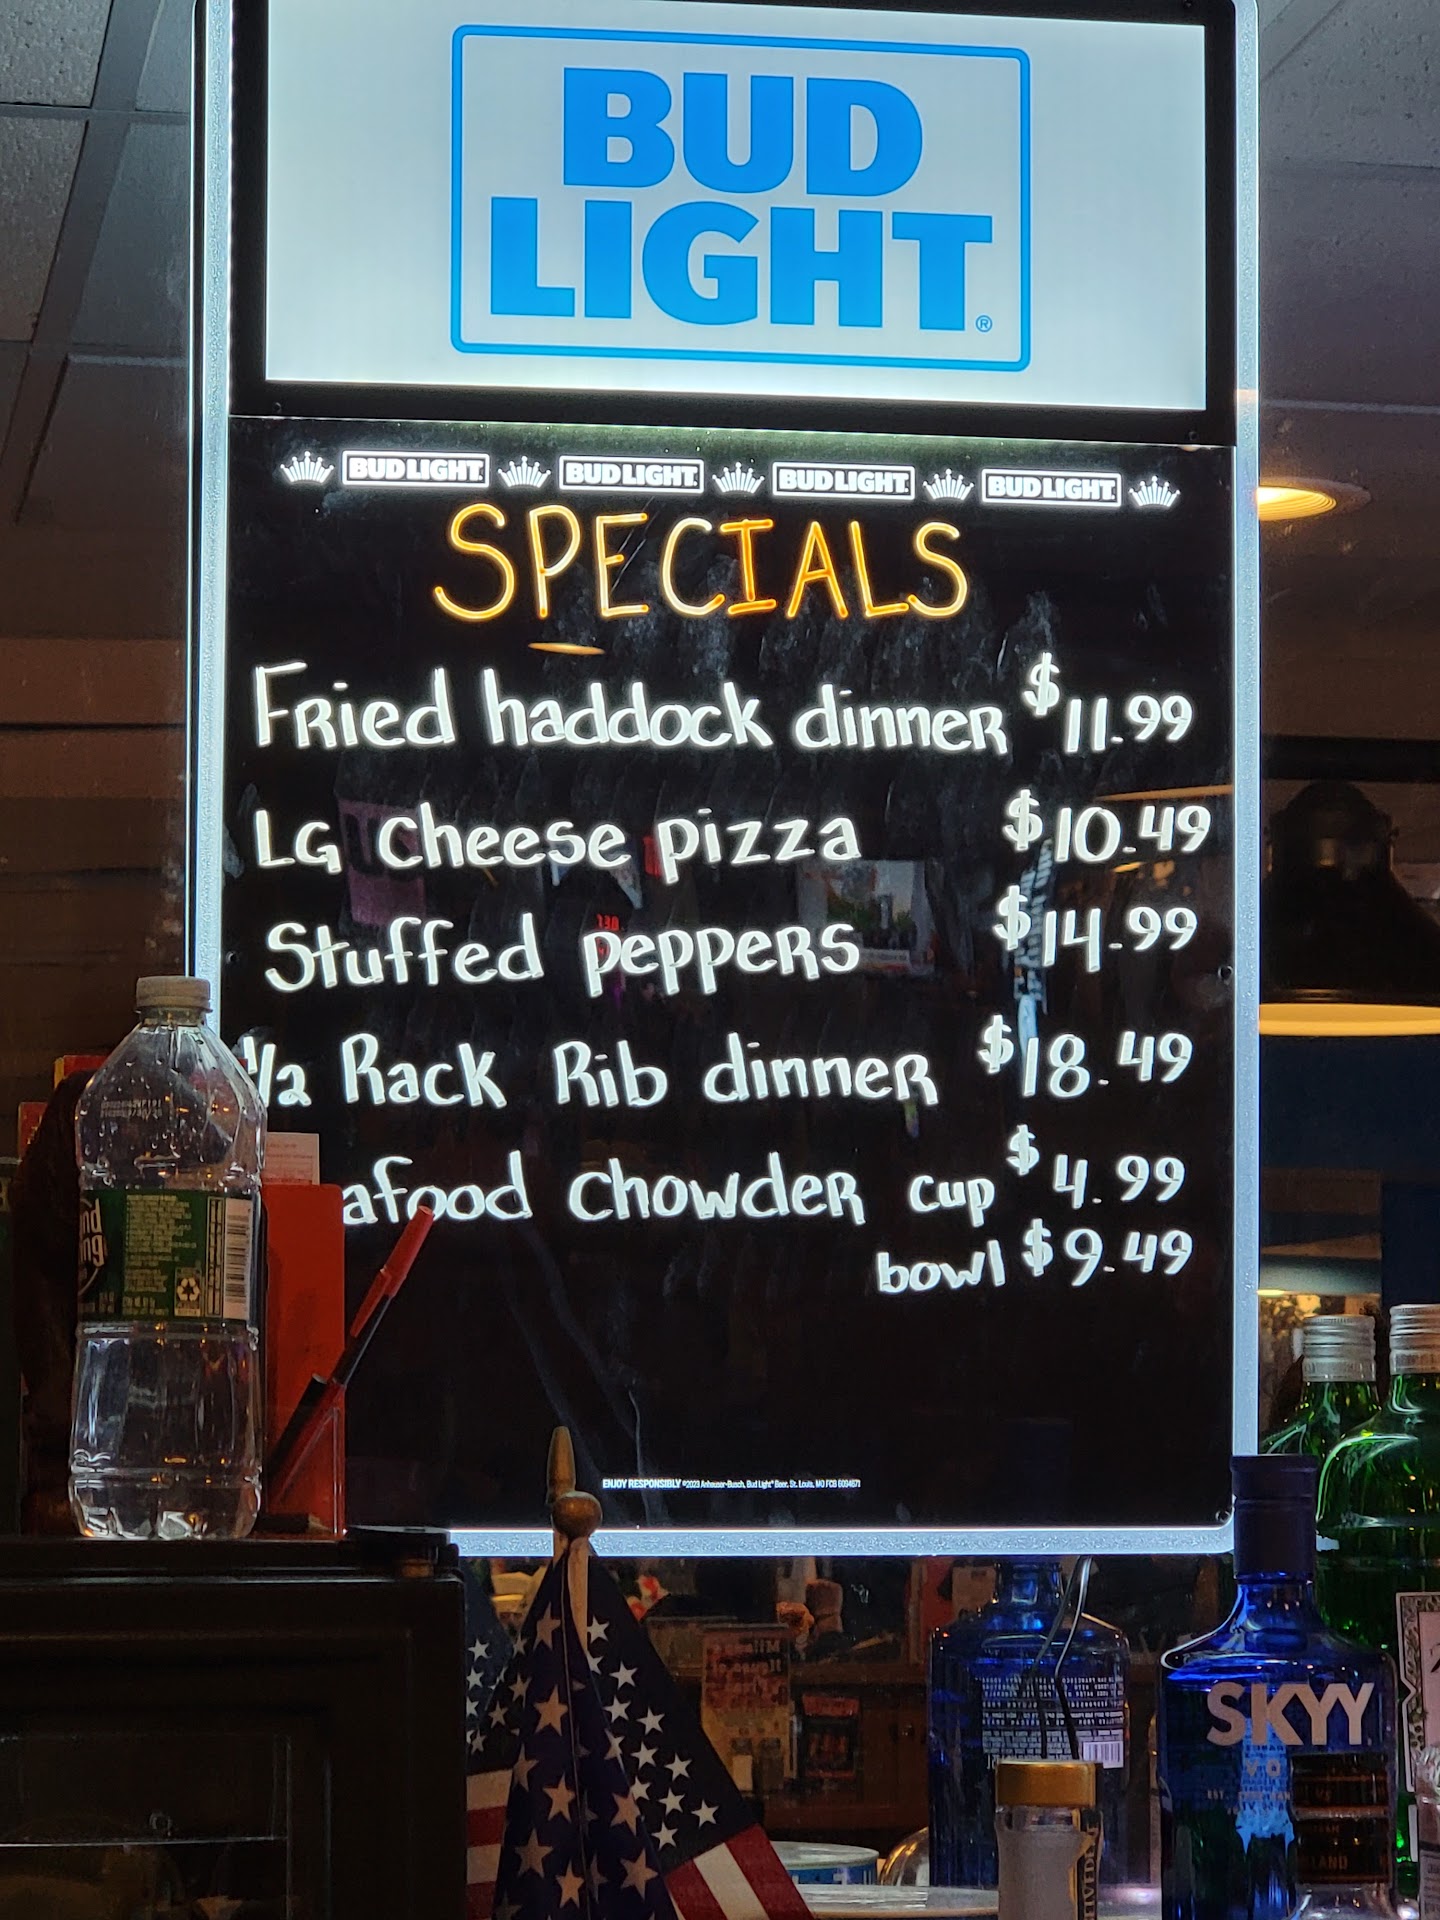 BUD
LIGHT®
BUD LIGHT BUD LIGHT BUD LIGHT BUD LIGHT
SPECIALS
Fried haddock dinner $11.99
LG Cheese pizza $10.49
Stuffed peppers $14.99
1/2 Rack Rib dinner $18.49
afood Chowder cup $4.99
bowl $9.49
ENJOY RESPONSIBLY ©2023 Anheuser-Busch, Bud Light® Beer, St. Louis, MO
SKYY